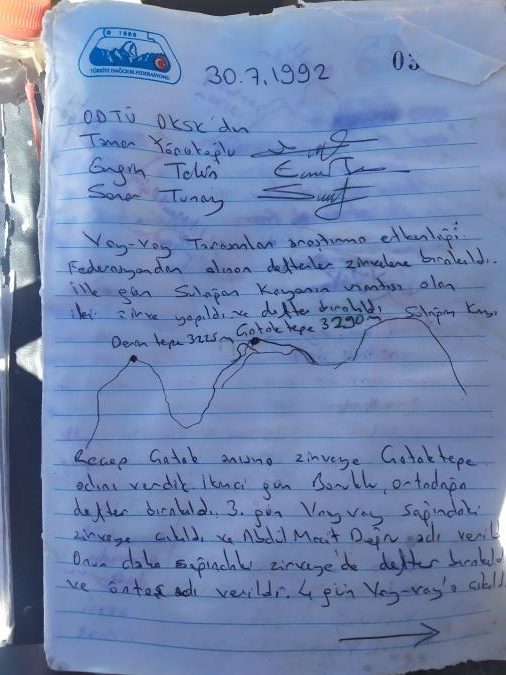 1966
TÜRKİYE DAĞCILIK FEDERASYONU
30.7.1992
03
ODTÜ DKSK'dan
Tamer
Engin Tekin
Soner Tunay
Vay-vay Toroslar araştırma etkinliği.
Federasyondan alınan defterler zirvelere bırakıldı.
İlk gün Sulağan Kayanın olan
iki zirve yapıldı ve defter bırakıldı
Sulağan Kaya
Deren tepe 3225m
Gatoktepe 3290m
Recep Gatok anısına zirveye Gatoktepe
adını verdik. İkinci gün Boruklu, ortadağa
defter bırakıldı. 3. gün Vay vay sağındaki
zirveye çıkıldı ve Abdül Macit Doğru adı veril
Onun daha sağındaki zirveye'de defter bırakıldı
ve adı verildi. 4 gün Vay-vay'a çıkıldı